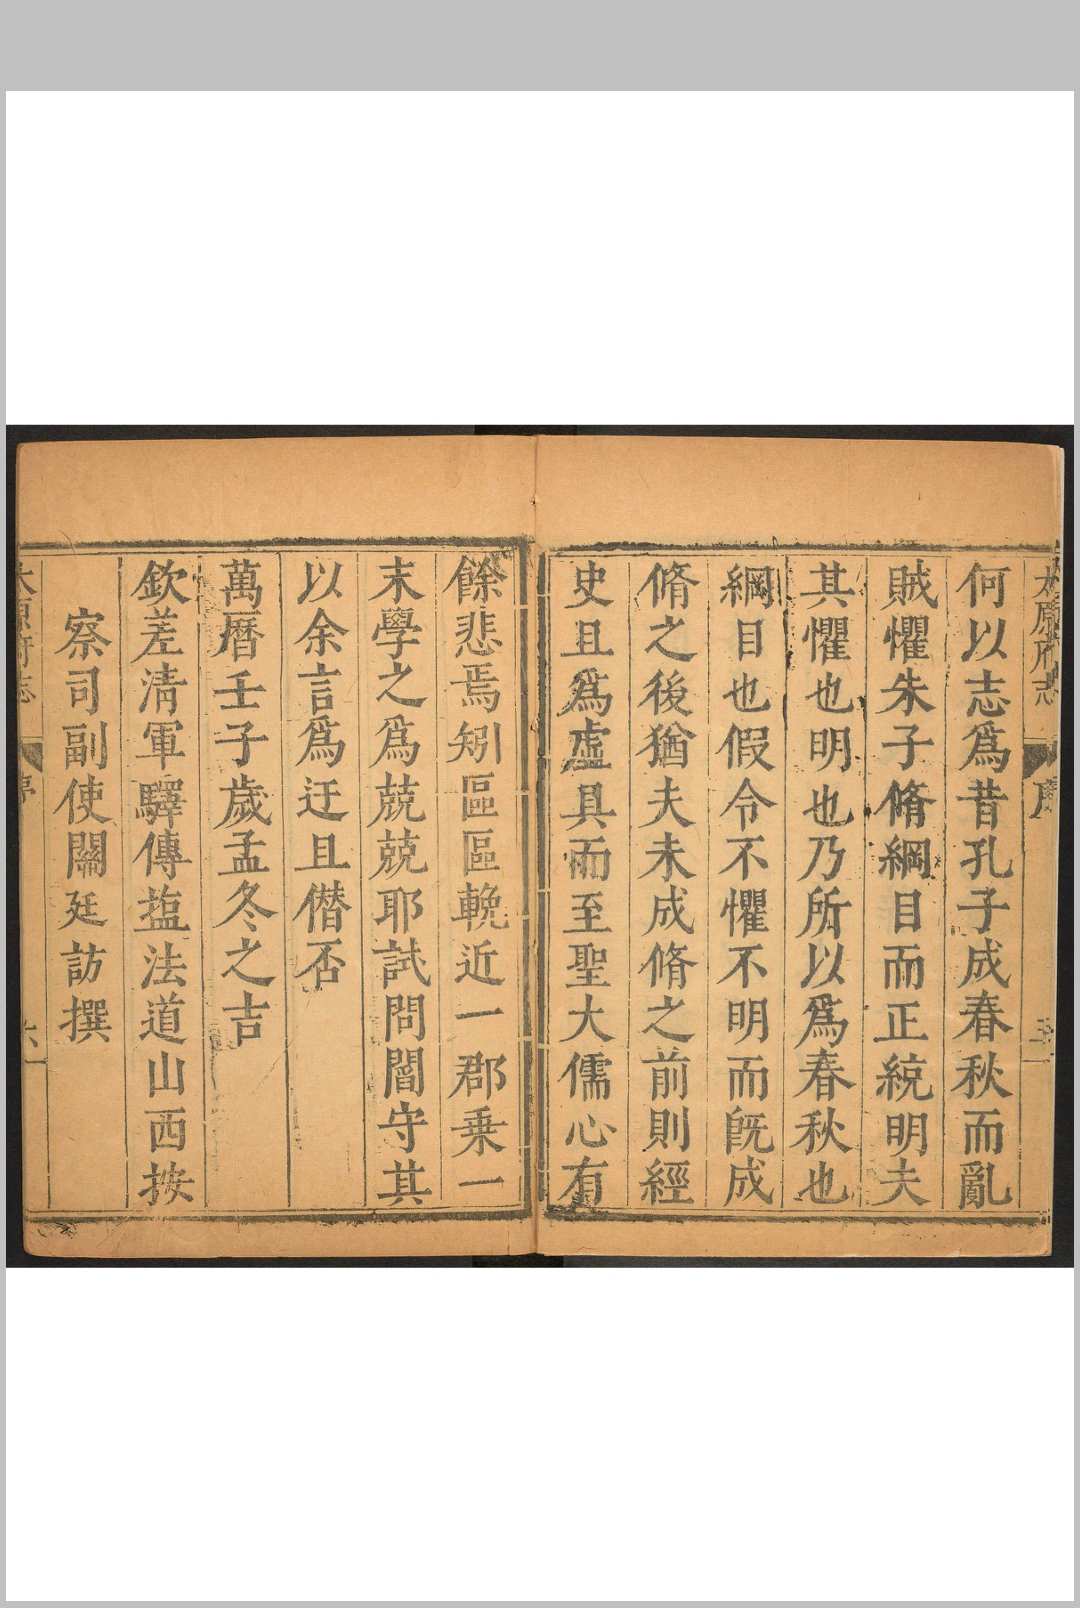 太原府志 序
何以志爲昔孔子成春秋而亂
賊懼朱子脩綱目而正統明夫
其懼也明也乃所以爲春秋也
綱目也假令不懼不明而旣成
脩之後猶夫未成脩之前則經
史且爲虛具而至聖大儒心有
餘悲焉矧區區輓近一郡乗一
末學之爲兢兢耶試問閣守其
以余言爲迂且僭否
萬曆壬子歲孟冬之吉
欽差清軍驛傳塩法道山西按
察司副使關廷訪撰
太原府志 序 六